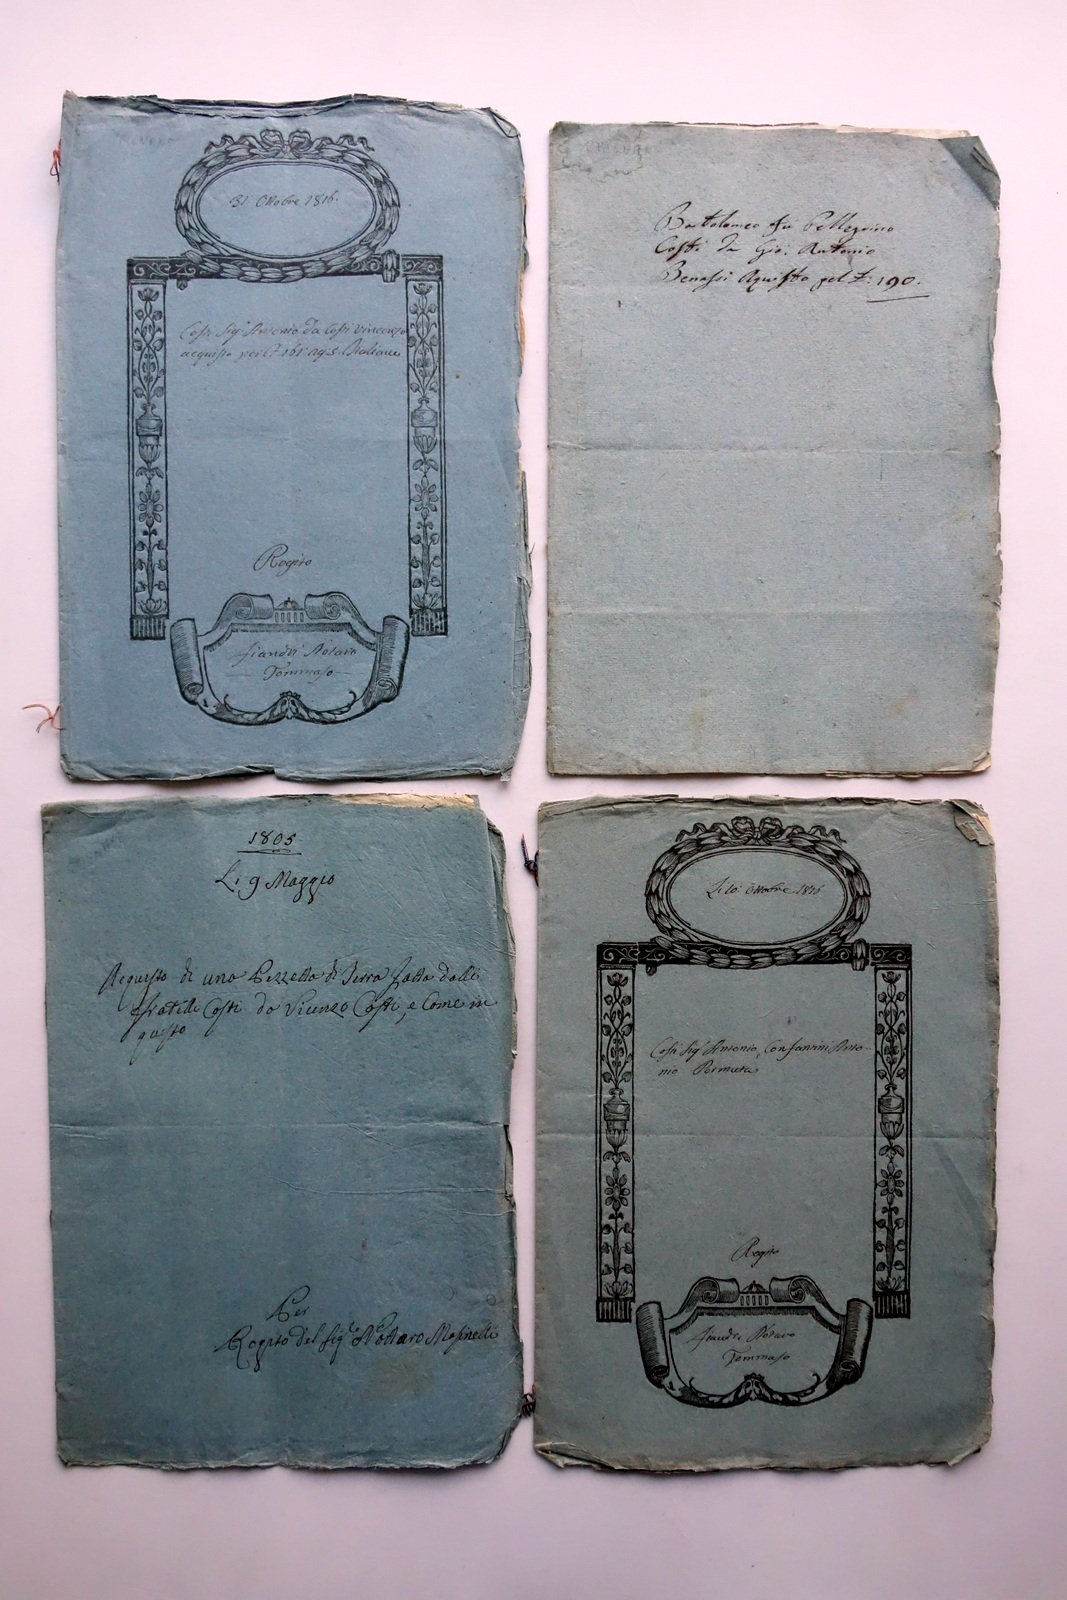 31 Ottobre 1816.
Costi Sig.r Antonio da Costi Vincenzo
acquisto per Italiane
Rogito
Notaro
Tommaso
Bartolomeo fu Pellegrino
Costi da Gio: Antonio
Benassi Aquisto pel £: 190.
1805
Li 9 Maggio
Acquisto di una Pezzetta di Terra fatta dalli
fratelli Costi da Vicenzo Costi, e Come in
questo
Per
Rogito del Sig.re Nottaro Masinelli
Ottobre 1816
Costi Sig.r Antonio, Con Santini Anto-
nio Permuta
Rogito
Notaro
Tommaso